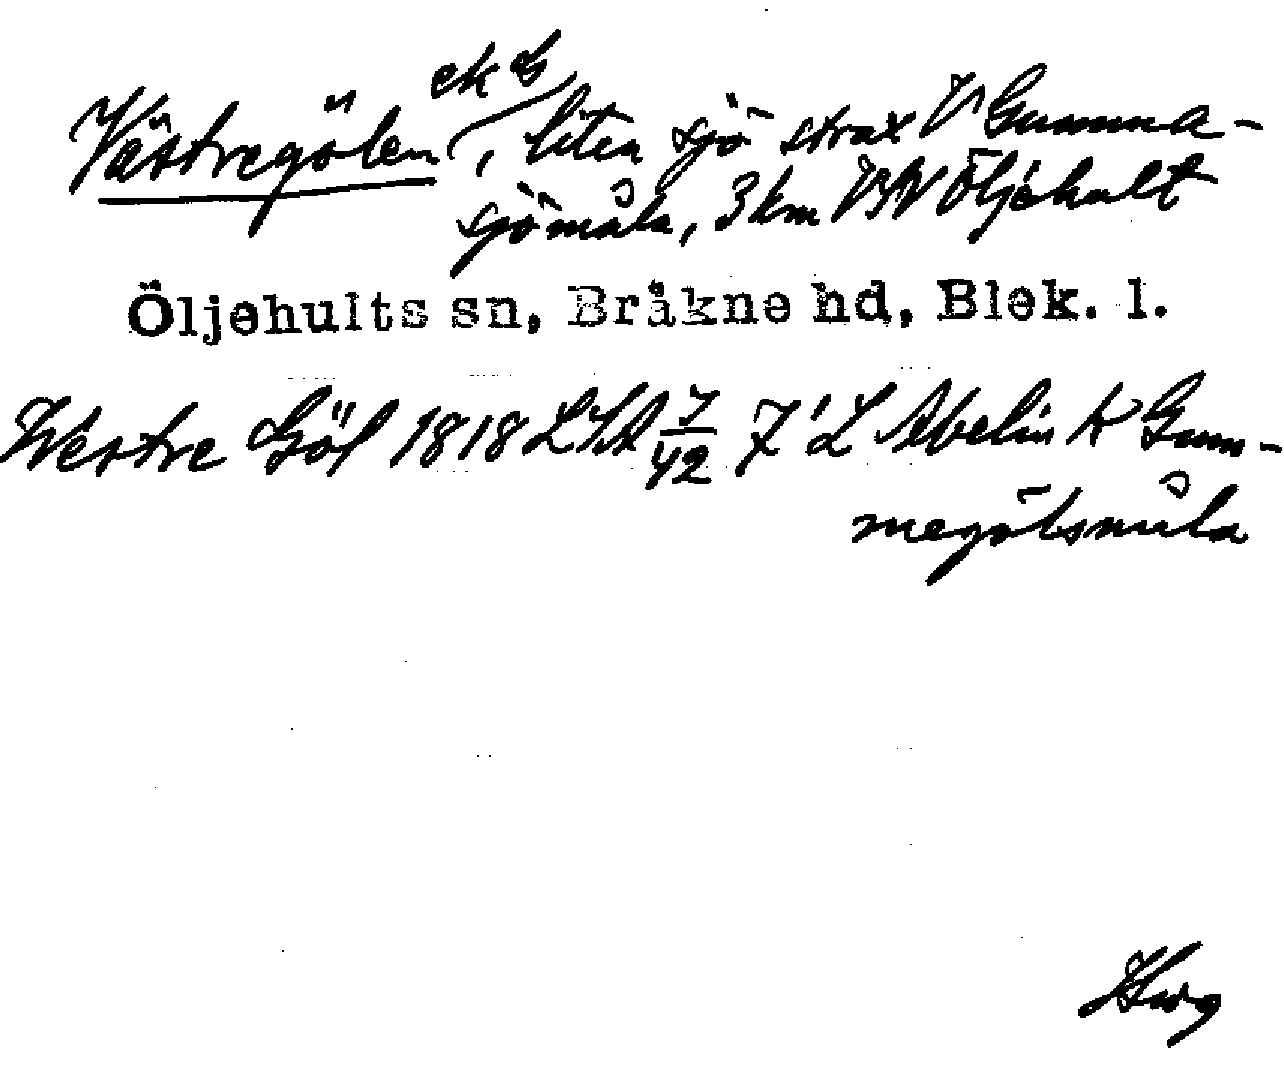 ek b
Västregölen, liten sjö strax V Gumma-
sjömåla, 3 km VNV Öljehult
Öljehults sn, Bräkne hd, Blek. l.
Westre Göl 1818 LSA 7/42 7 L Abelin k Gum-
megölsmåla